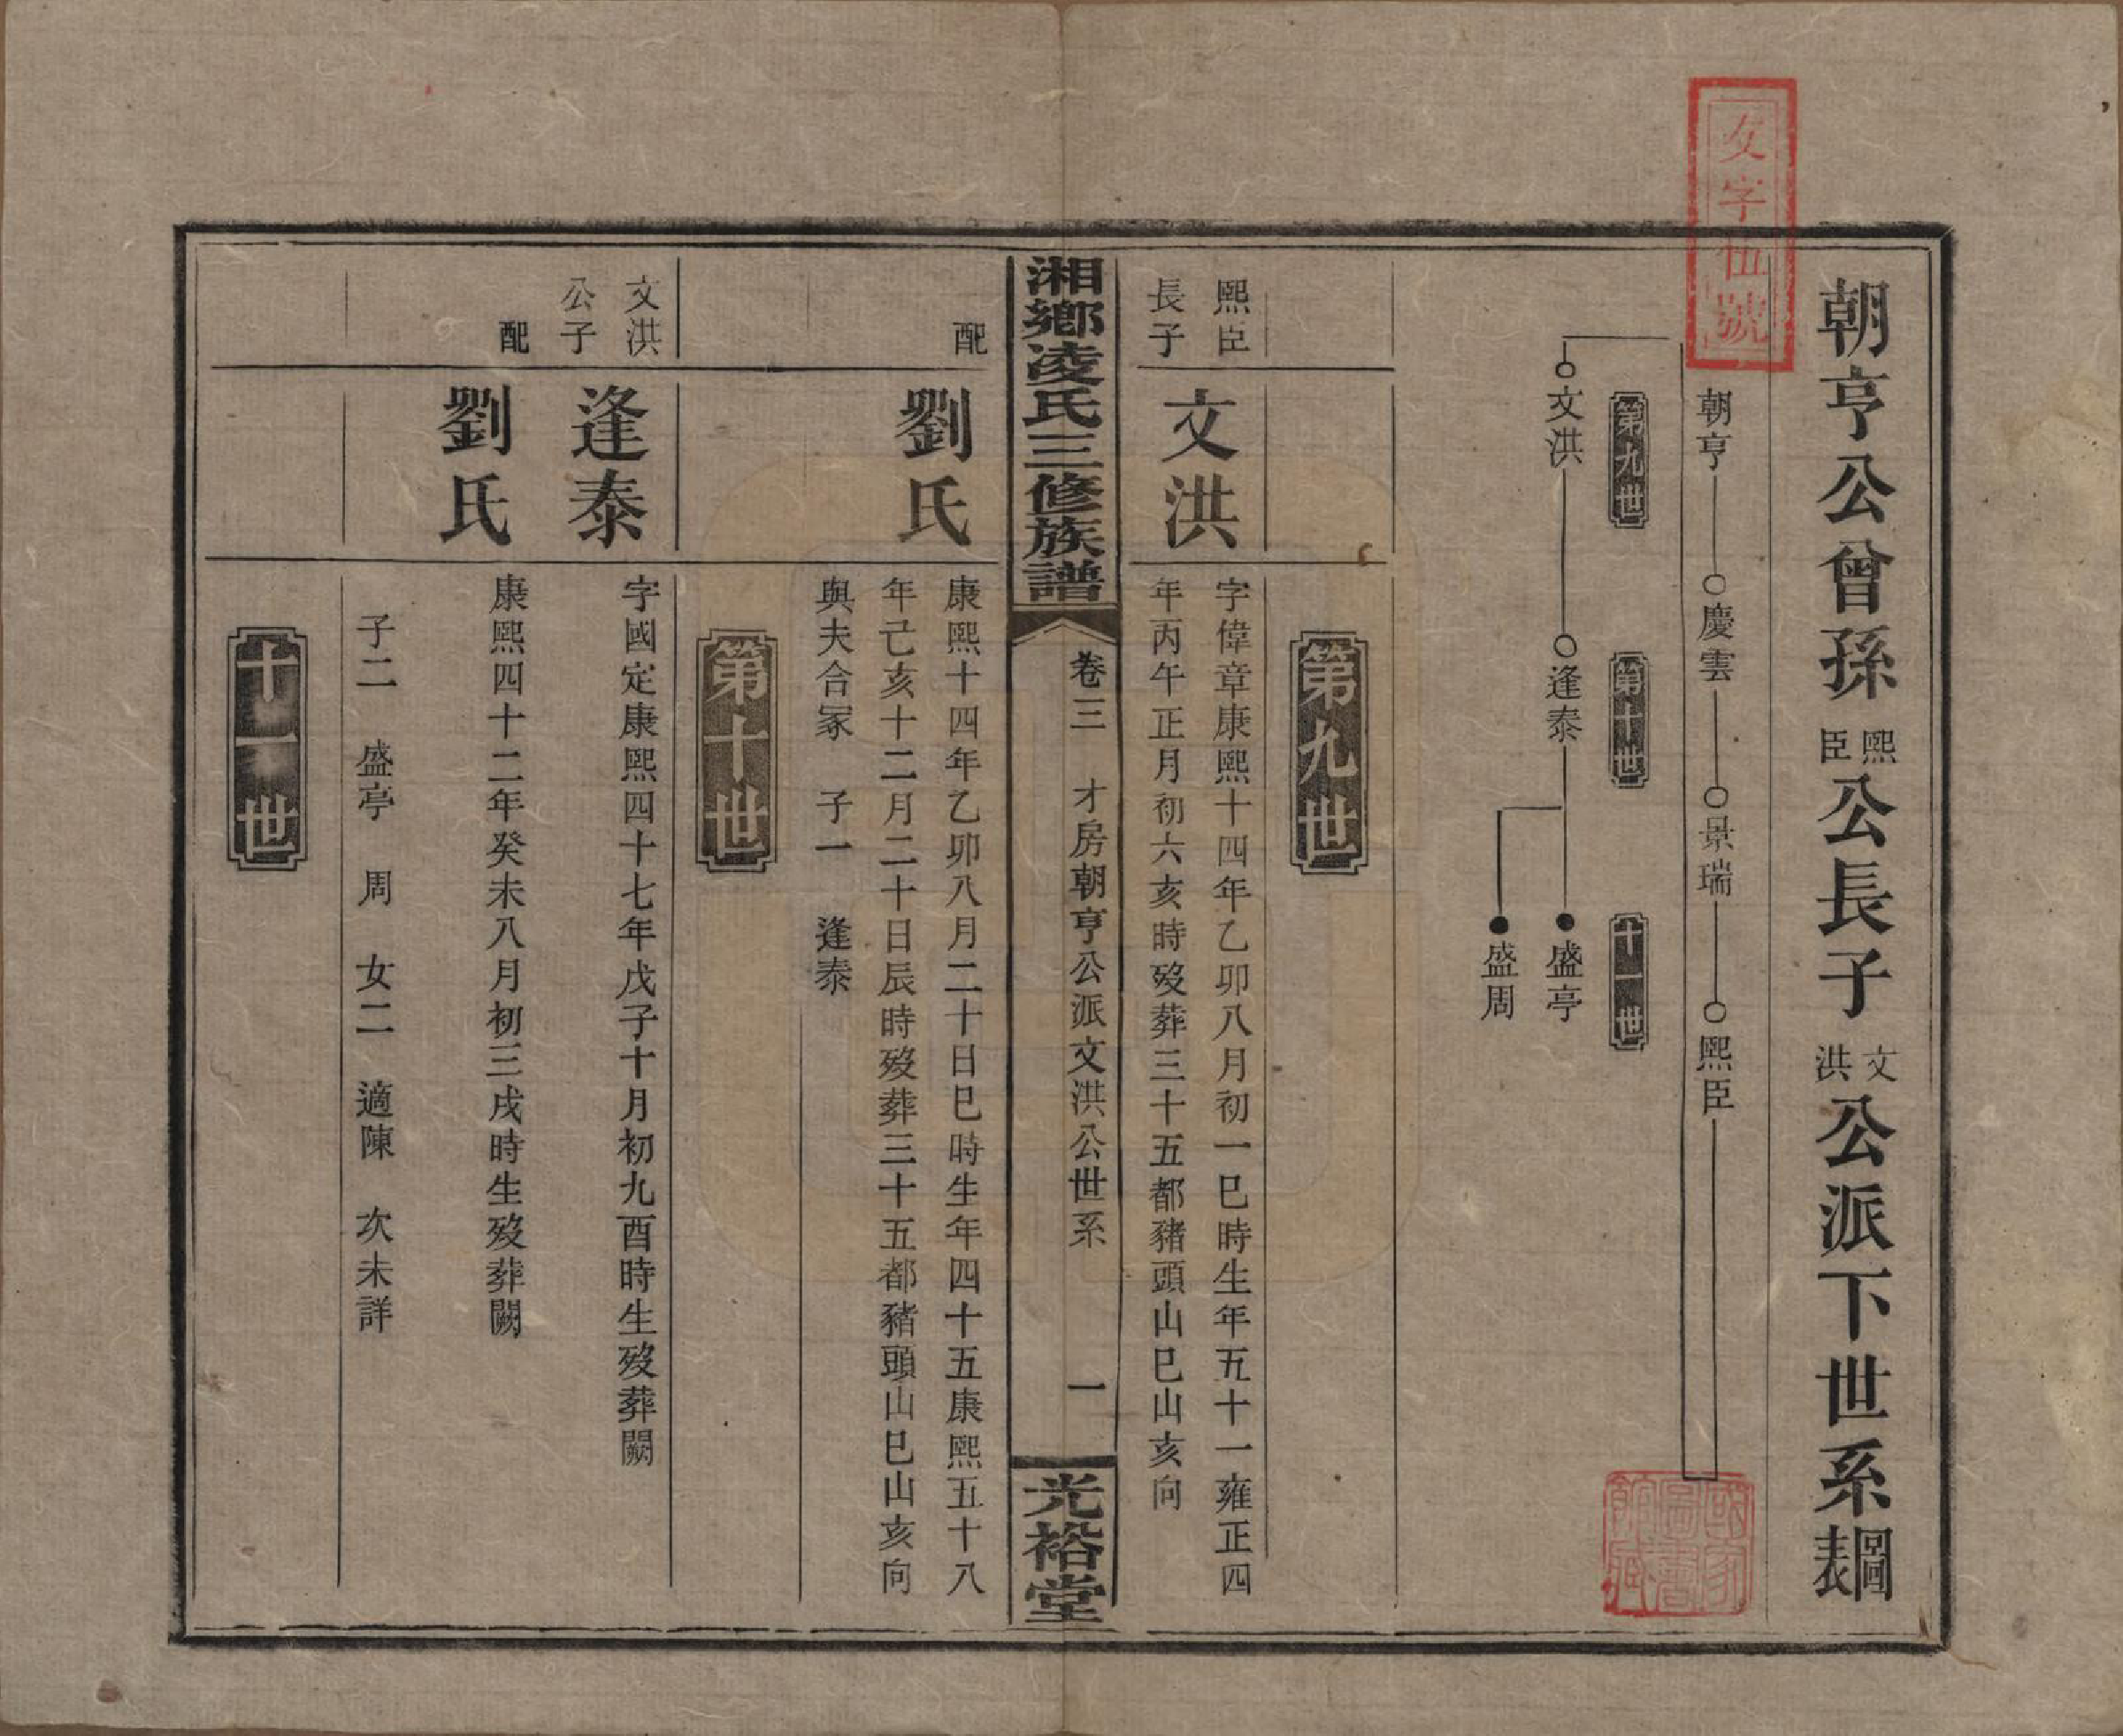 文字伍號
朝亨公曾孫熙臣公長子文洪公派下世系圖表
朝亨 慶雲 景瑞 熙臣
第九世 第十世 十一世
文洪 逢泰 盛亭
盛周
國家圖書館藏
第九世
熙臣長子 文洪 字偉章康熙十四年乙卯八月初一巳時生年五十一雍正四
年丙午正月初六亥時歿葬三十五都豬頭山巳山亥向
湘鄉凌氏三修族譜 卷三 才房朝亨公派文洪公世系 一 光裕堂
配 劉氏 康熙十四年乙卯八月二十日巳時生年四十五康熙五十八
年己亥十二月二十日辰時歿葬三十五都豬頭山巳山亥向
與夫合冢 子一 逢泰
第十世
文洪公子 逢泰 字國定康熙四十七年戊子十月初九酉時生歿葬闕
配 劉氏 康熙四十二年癸未八月初三戌時生歿葬闕
子二 盛亭 周 女二 適陳 次未詳
十一世